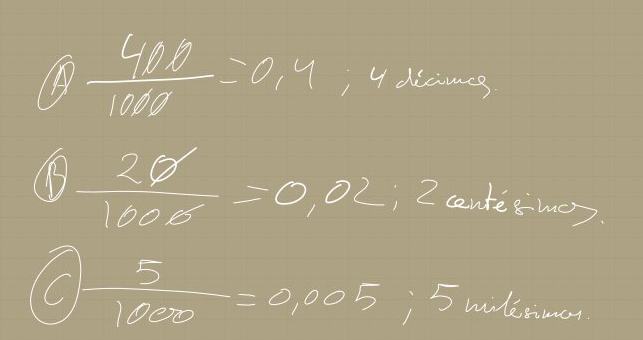 A 400/1000 = 0,4 ; 4 décimos.
B 20/1000 = 0,02 ; 2 centésimos.
C 5/1000 = 0,005 ; 5 milésimos.